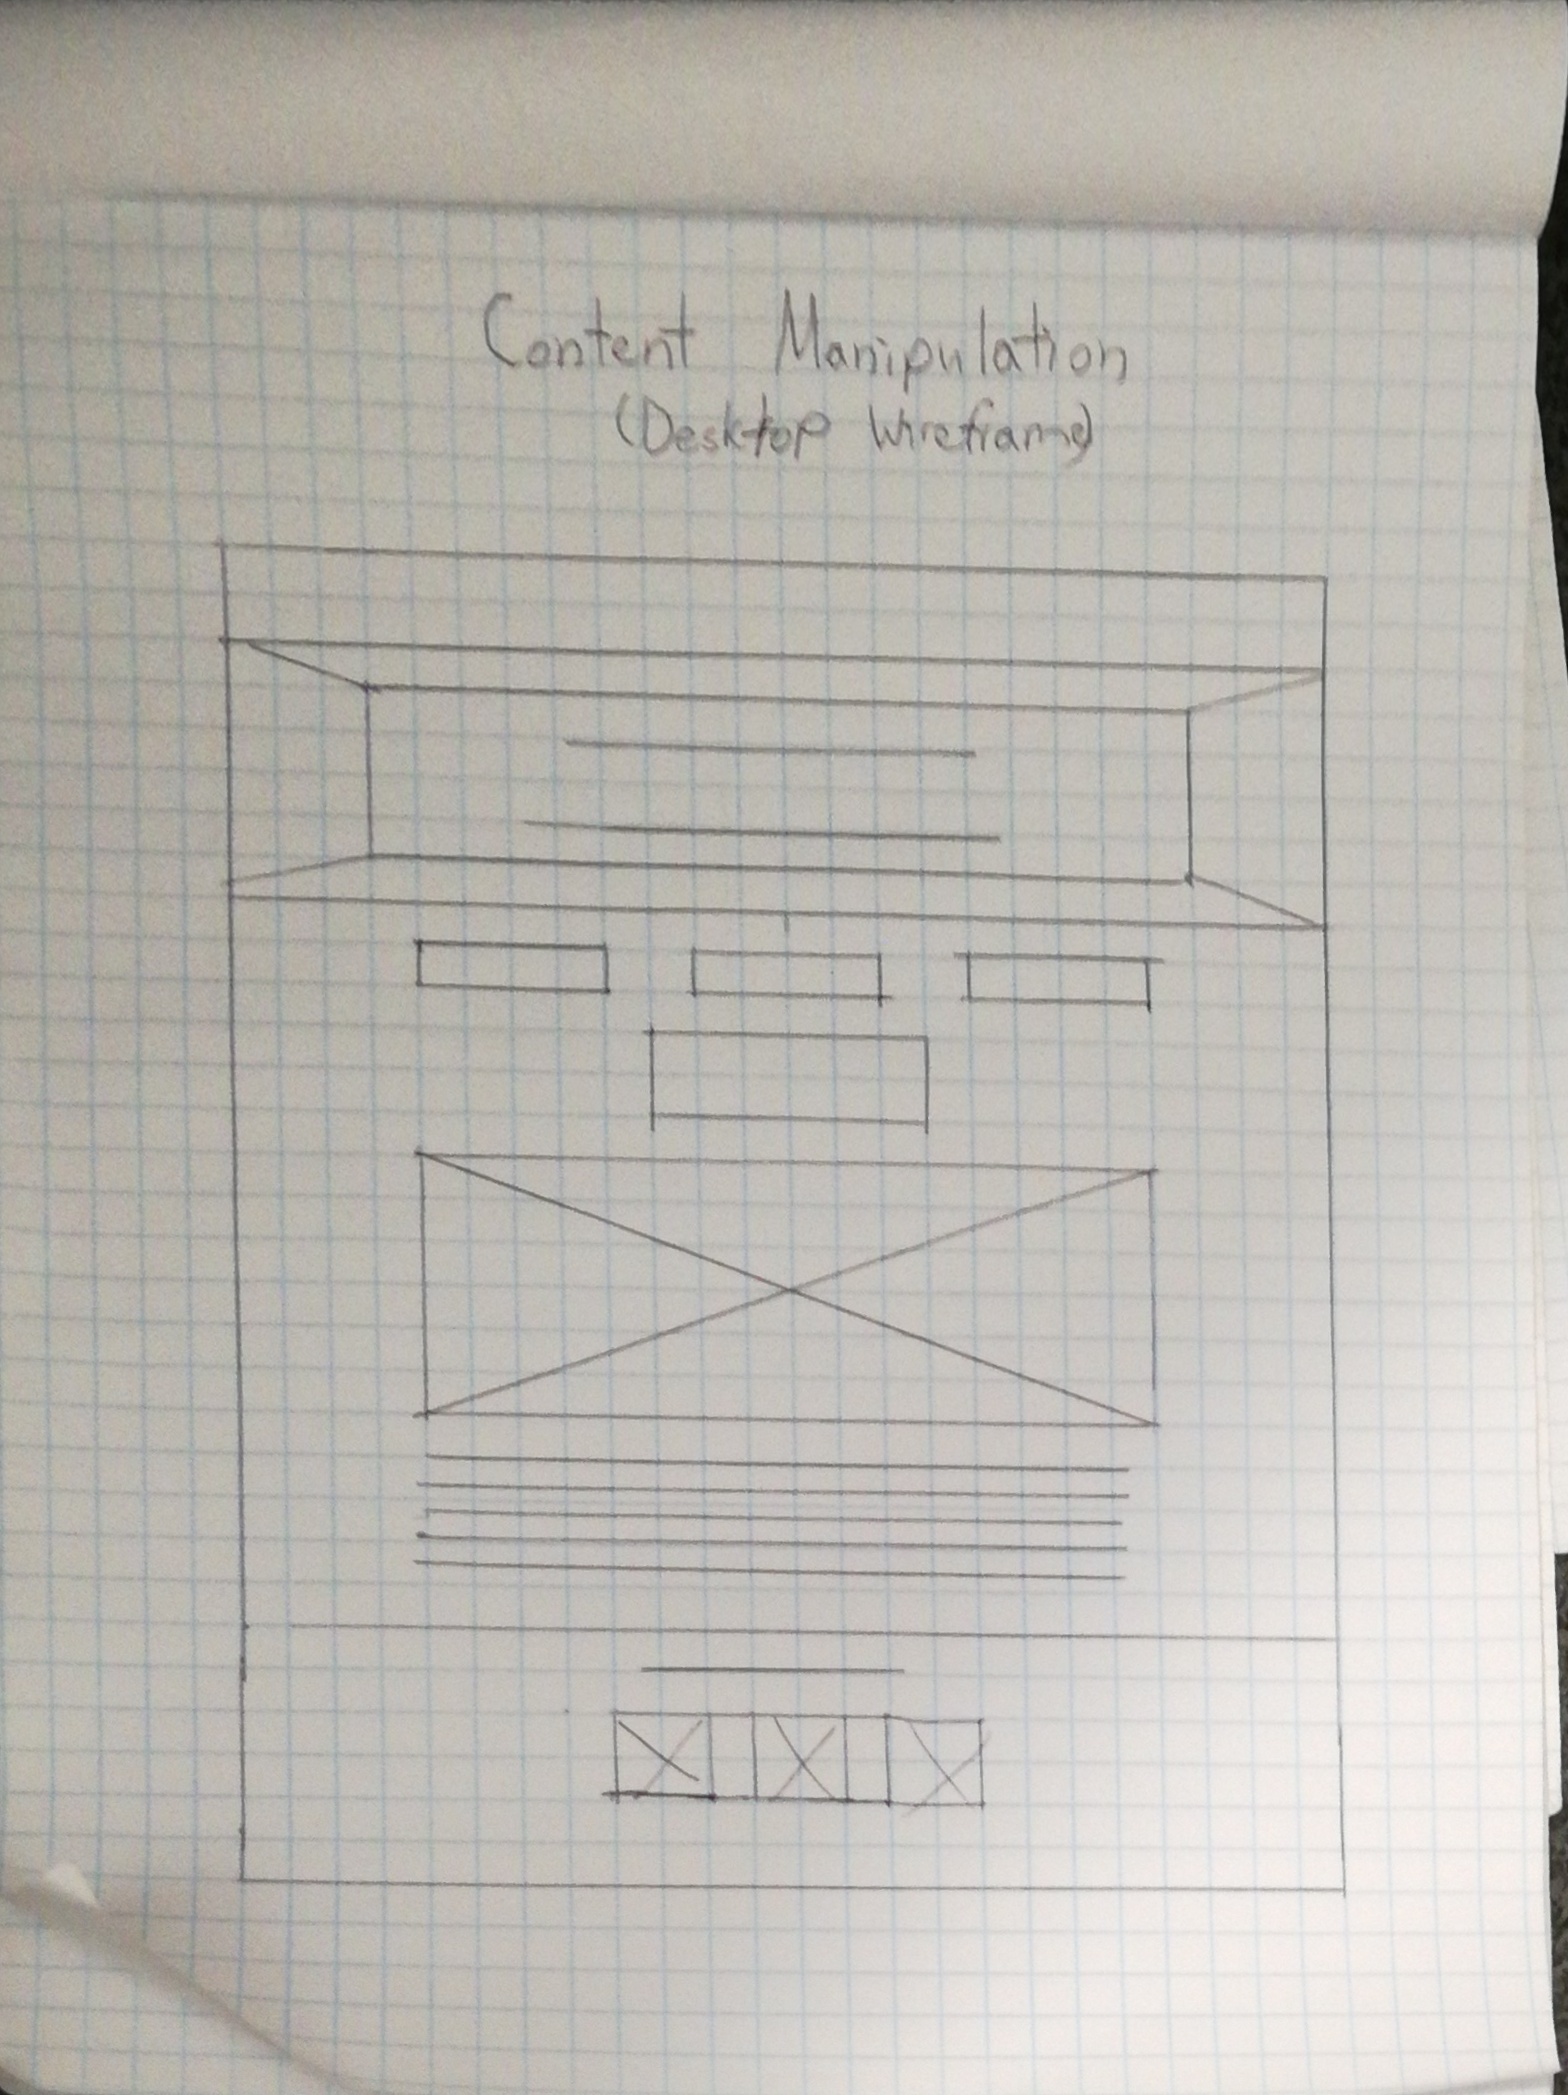 Content Manipulation
(Desktop Wireframe)